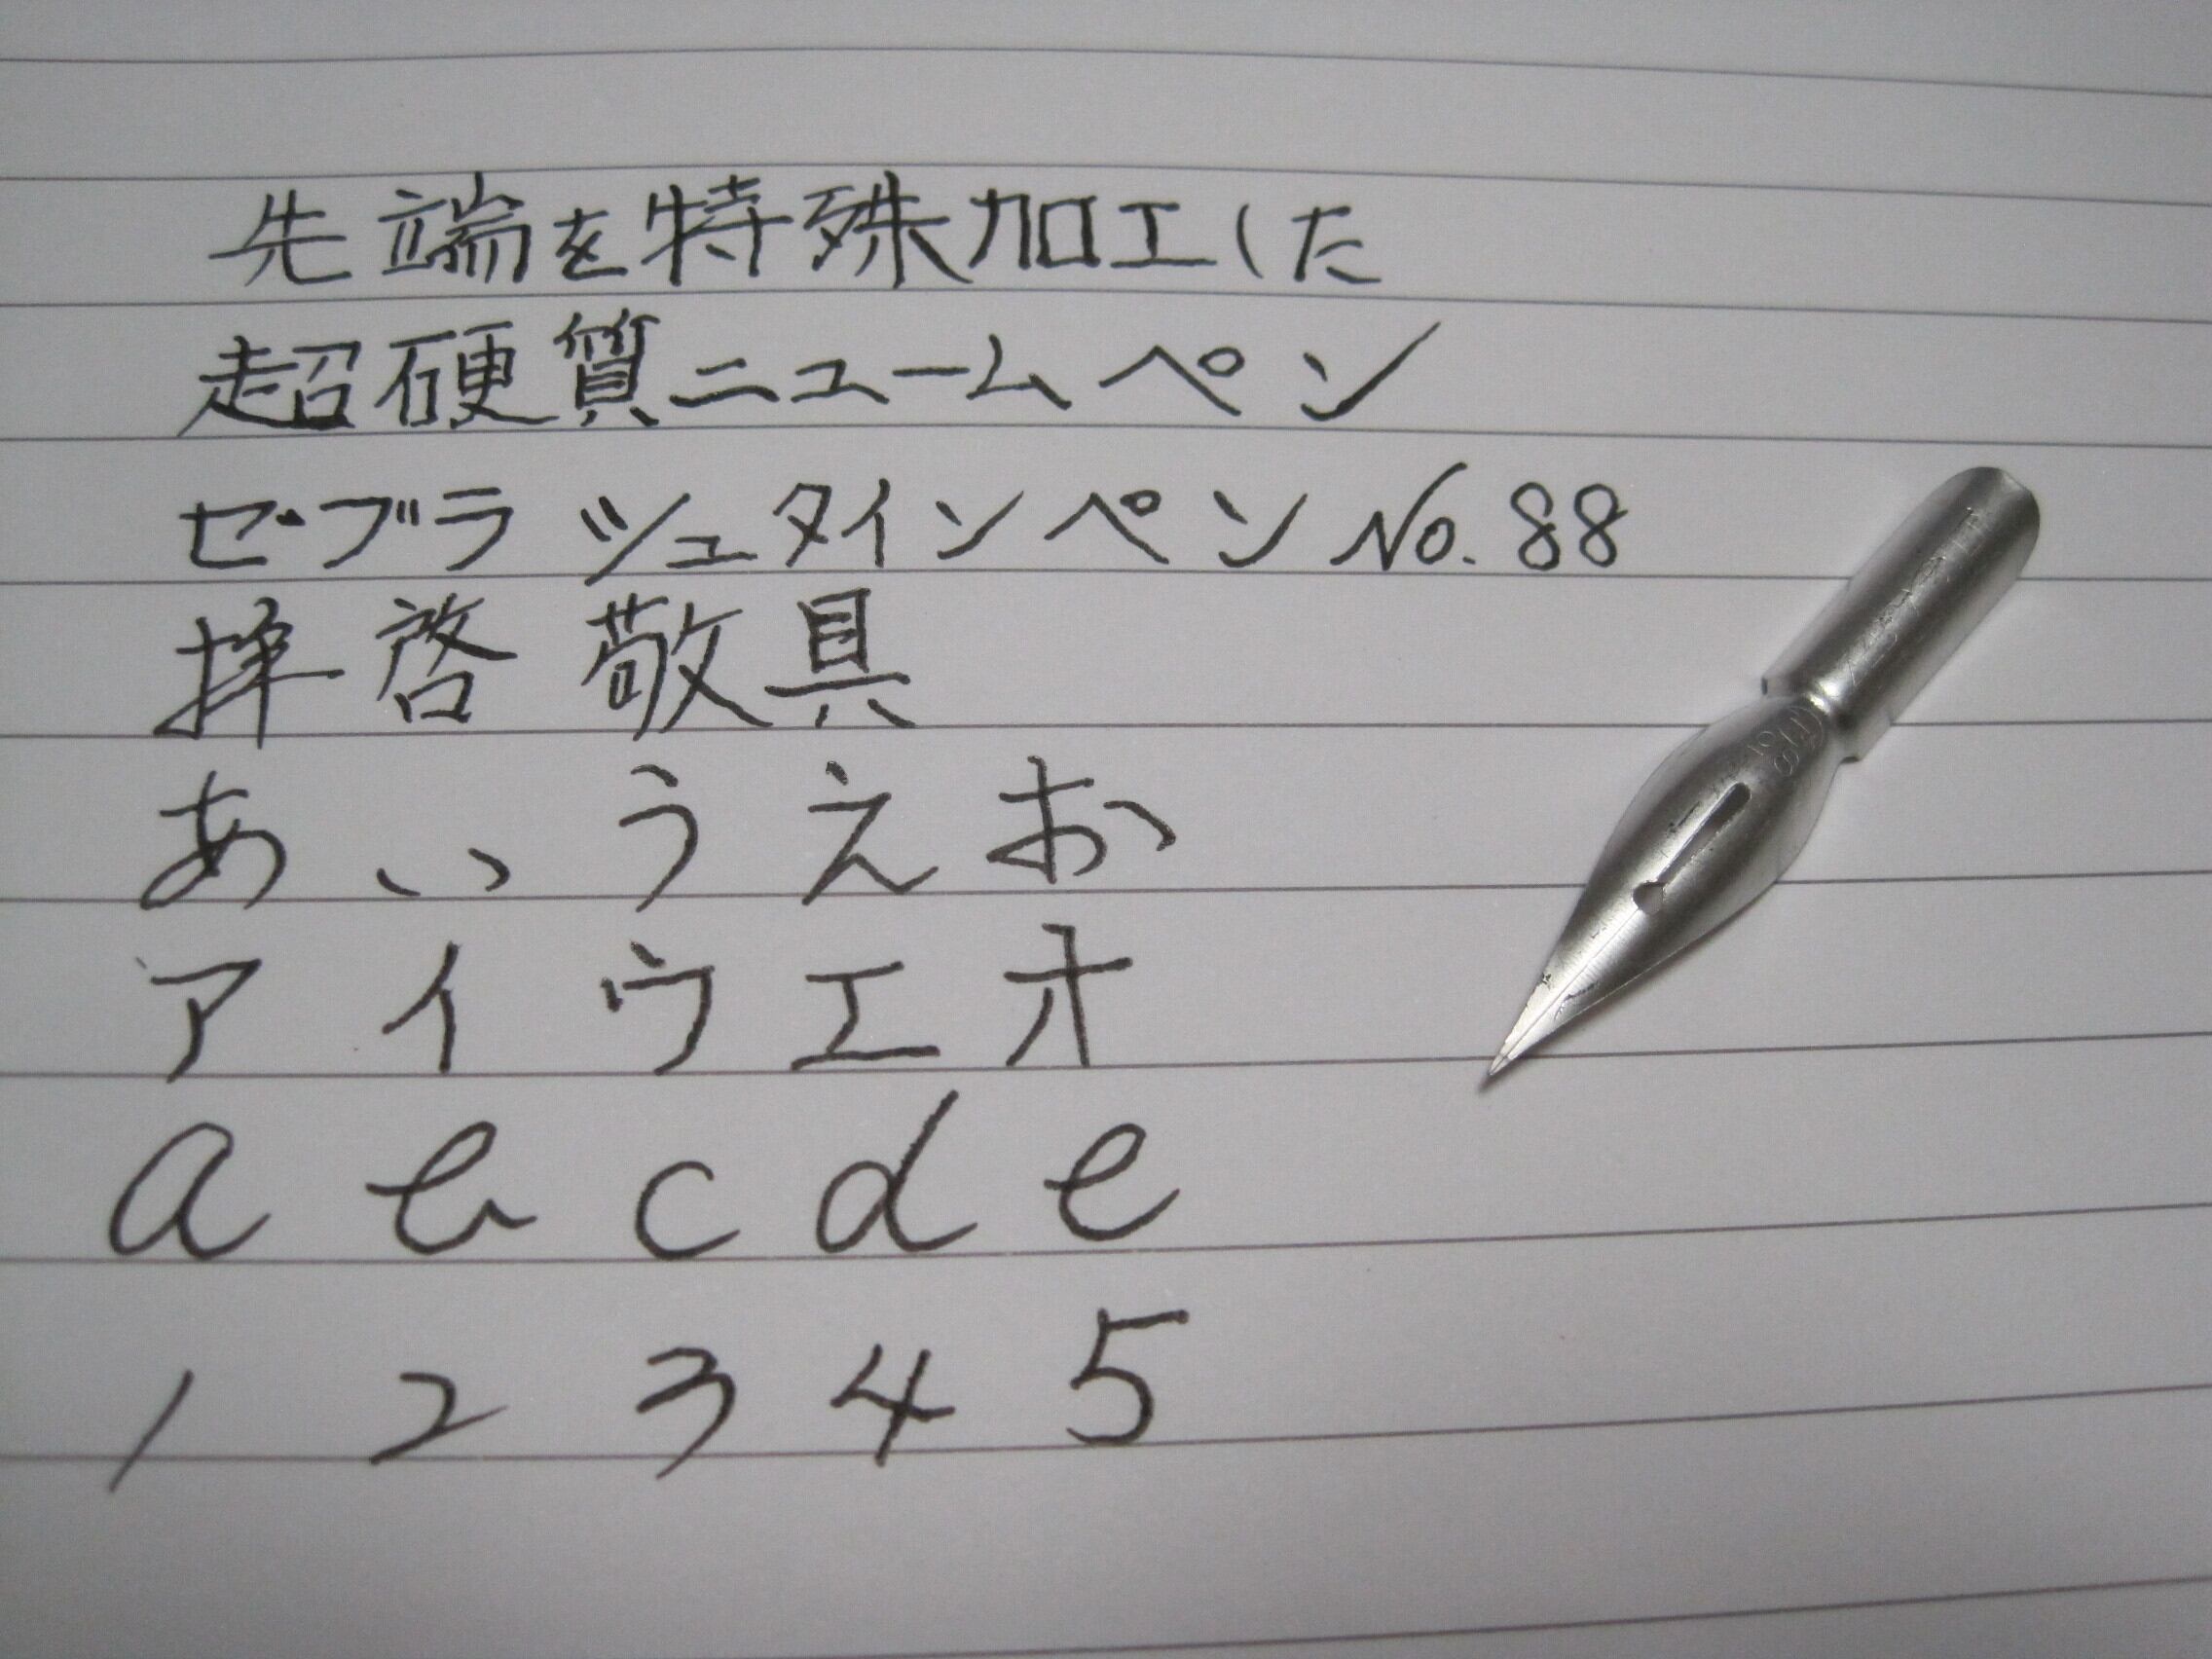 先端を特殊加工した
超硬質ニュームペン
ゼブラ シュタインペン No.88
拝啓 敬具
あ い う え お
ア イ ウ エ オ
a b c d e
1 2 3 4 5